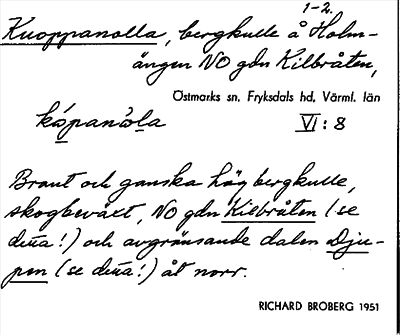 1-2.
Kuoppanolla, bergkulle å Holm-
ängen NO gdn Kilbråten,
Östmarks sn, Fryksdals hd, Värml. län
kópanòla VI: 8
Brant och ganska hög bergkulle,
skogbeväxt, NO gdn Kilbråten (se
detta!) och avgränsande dalen Dju-
pen (se detta!) åt norr.
RICHARD BROBERG 1951